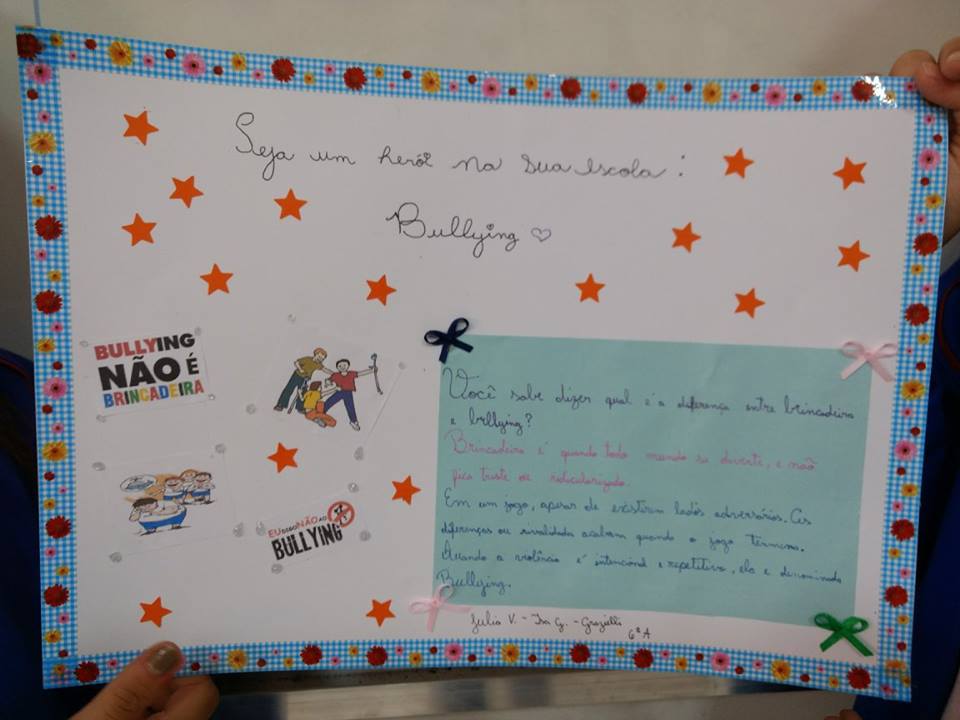 Seja um herói na sua escola:
Bullying
BULLYING
NÃO É
BRINCADEIRA
EU DIGO NÃO AO
BULLYING
Você sabe dizer qual é a diferença entre brincadeira
e bullying?
Brincadeira é quando todo mundo se diverte, e não
fica triste ou ridicularizado.
Em um jogo, apesar de existirem lados adversários. As
diferenças ou rivalidade acabam quando o jogo termina.
Quando a violência é intencional e repetitivo, ela e denominada
Bullying.
Julia V. - Isa G. - Grazielli
6ª A